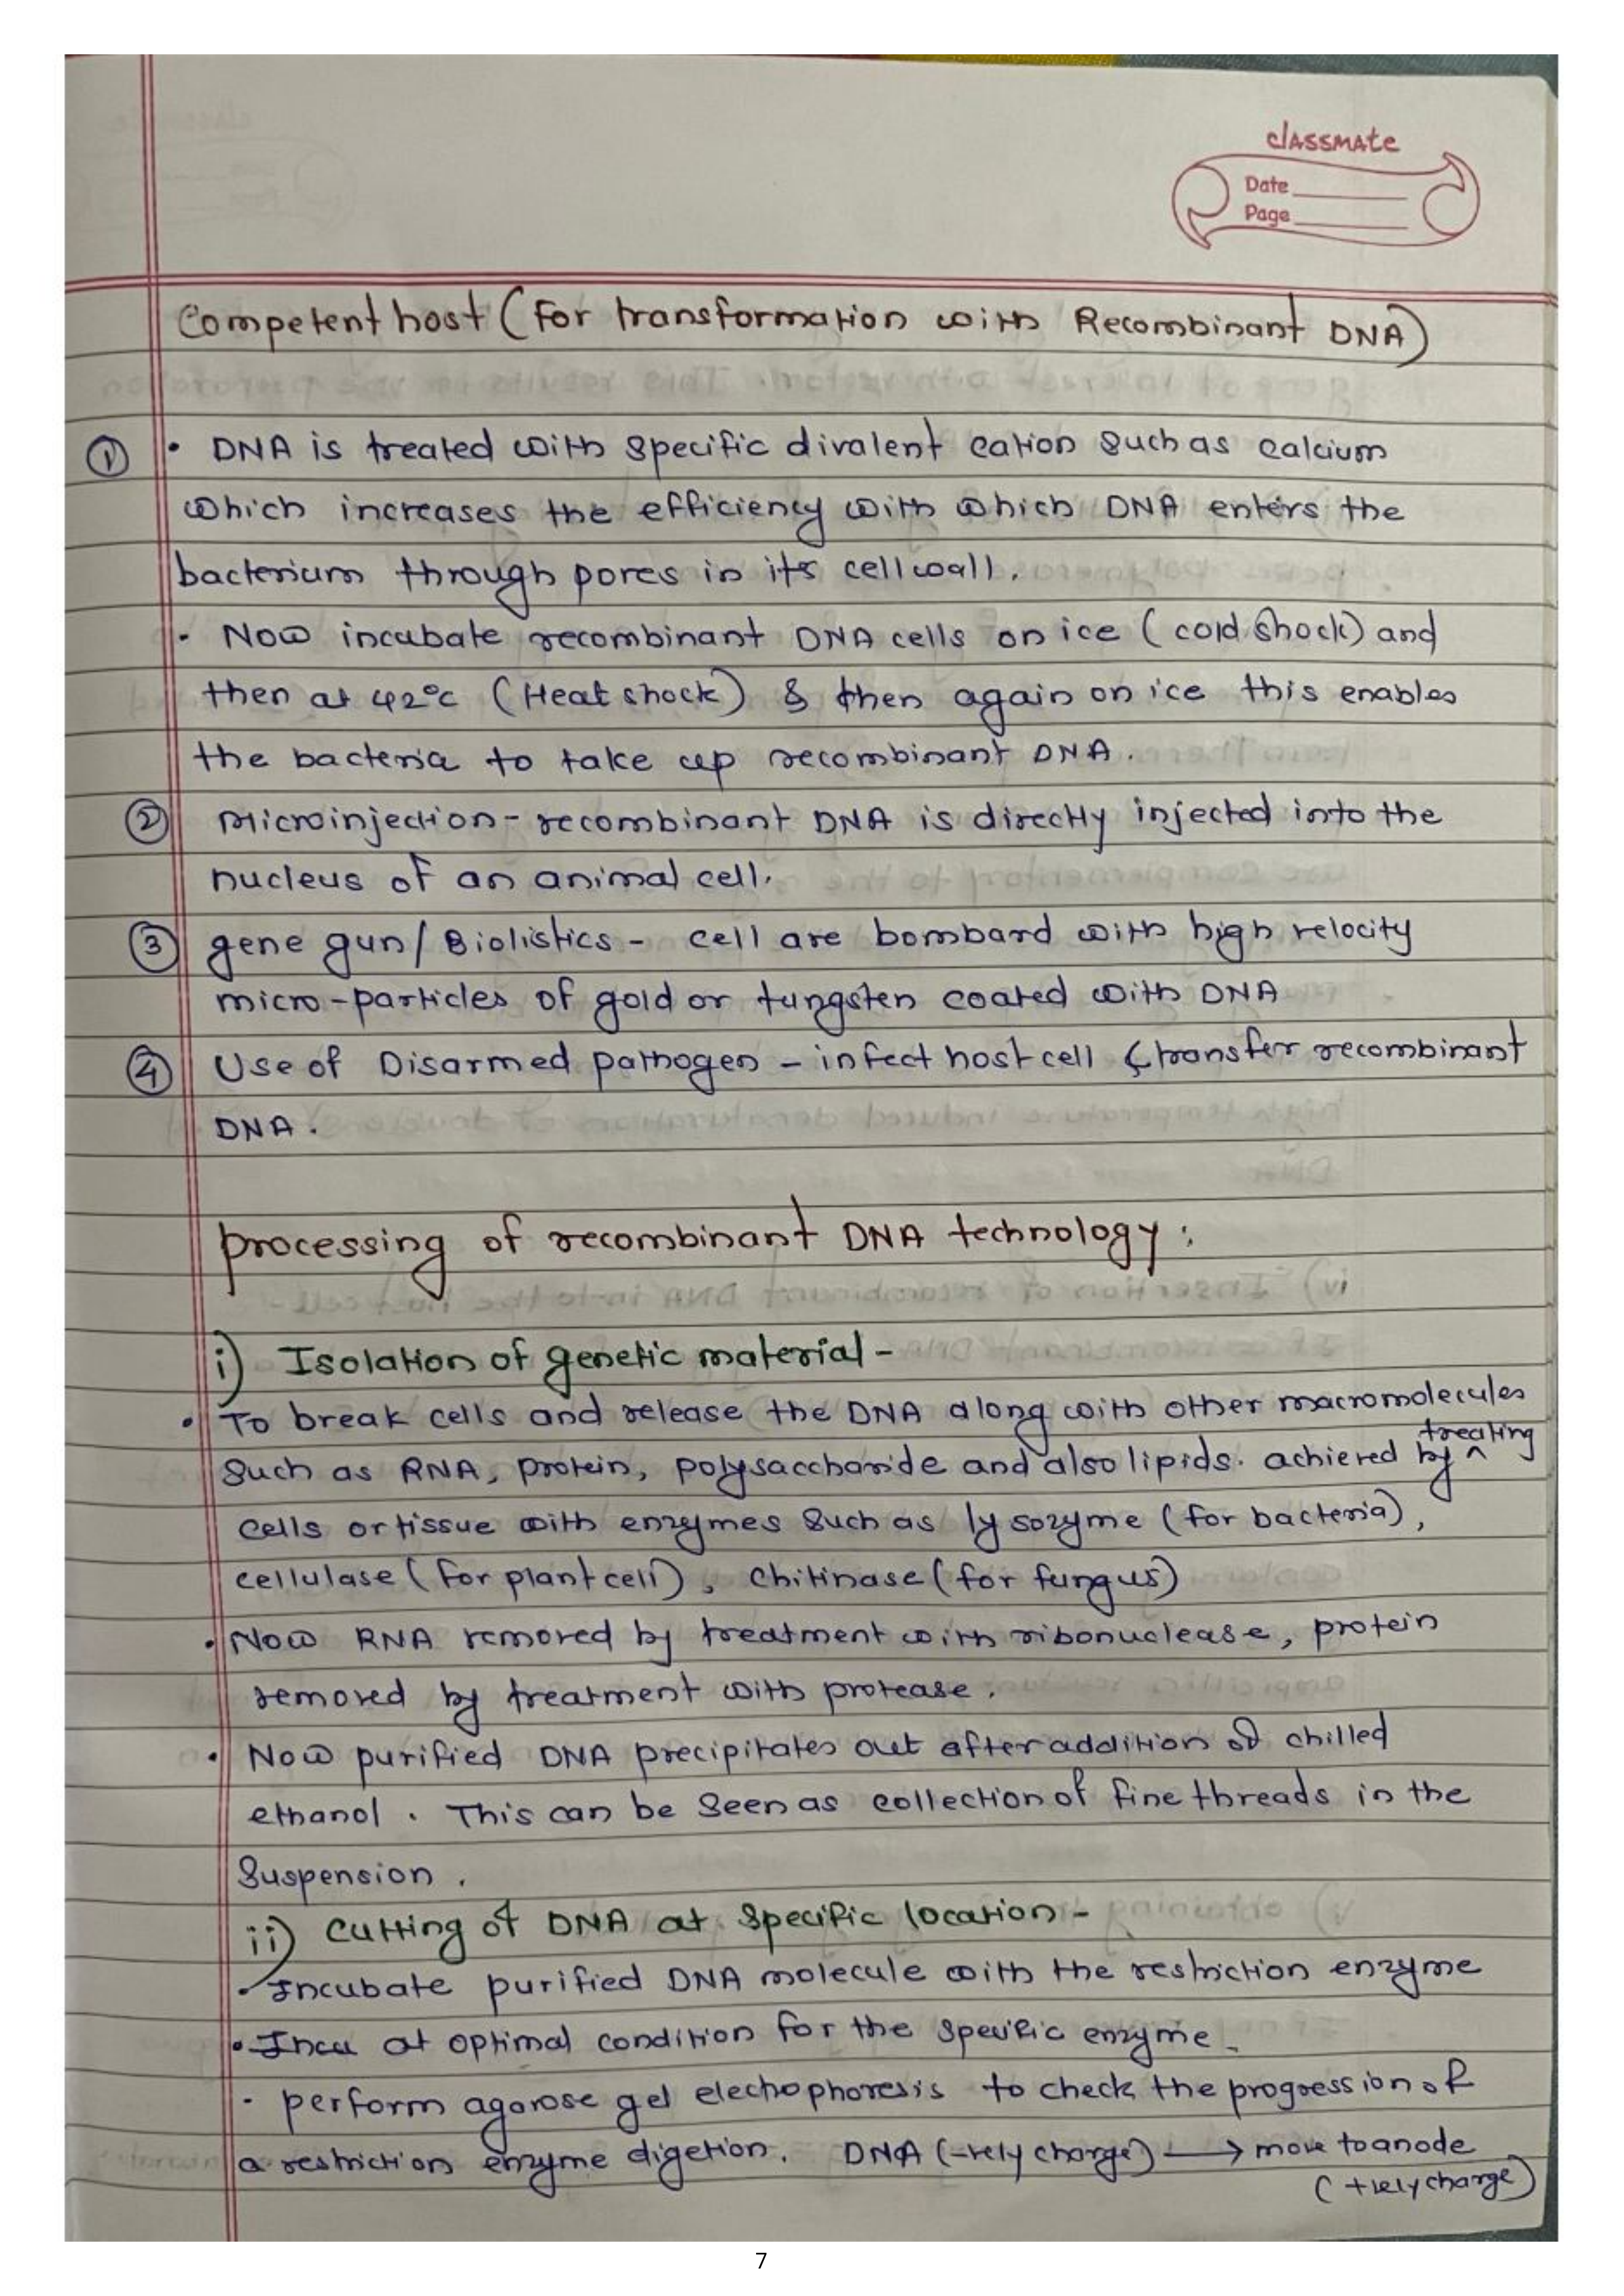 classmate
Date
Page
Competent host (For transformation with Recombinant DNA)
① • DNA is treated with specific divalent cation such as calcium
which increases the efficiency with which DNA enters the
bacterium through pores in its cell wall.
• Now incubate recombinant DNA cells on ice (cold shock) and
then at 42°C (Heat shock) & then again on ice this enables
the bacteria to take up recombinant DNA.
② Microinjection - recombinant DNA is directly injected into the
nucleus of an animal cell.
③ gene gun / Biolistics - cell are bombard with high velocity
micro-particles of gold or tungsten coated with DNA
④ Use of Disarmed pathogen - infect host cell & transfer recombinant
DNA.
processing of recombinant DNA technology :
i) Isolation of genetic material -
• To break cells and release the DNA along with other macromolecules
such as RNA, protein, polysaccharide and also lipids. achieved by ^ treating
cells or tissue with enzymes such as lysozyme (for bacteria),
cellulase (for plant cell), chitinase (for fungus)
• Now RNA removed by treatment with ribonuclease, protein
removed by treatment with protease.
• Now purified DNA precipitates out after addition of chilled
ethanol. This can be seen as collection of fine threads in the
suspension.
ii) Cutting of DNA at specific location -
• Incubate purified DNA molecule with the restriction enzyme
• at optimal condition for the specific enzyme.
• perform agarose gel electrophoresis to check the progression of
a restriction enzyme digetion. DNA (-vely charge) → move to anode
(+vely charge)
7